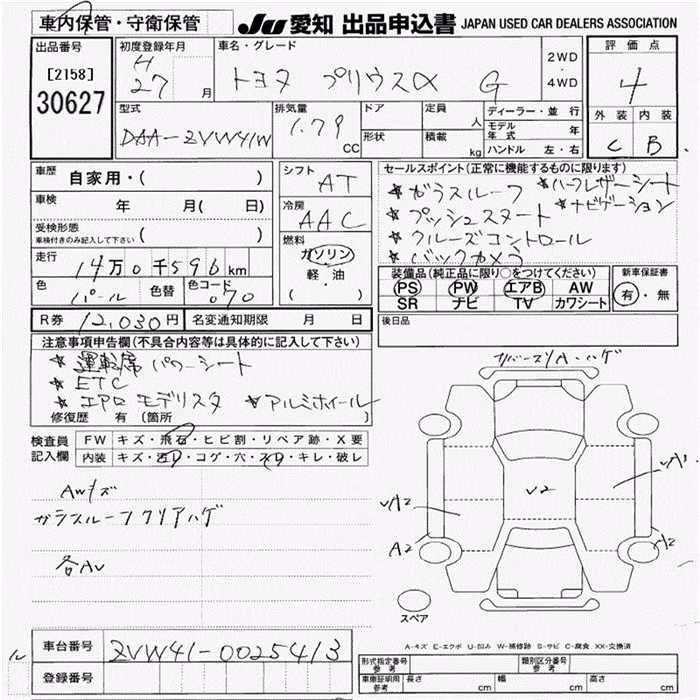 車内保管・守衛保管
JU 愛知 出品申込書 JAPAN USED CAR DEALERS ASSOCIATION
出品番号
[2158]
30627
初度登録年月
H
27 月
車名・グレード
トヨタ プリウスα G
2WD
・
4WD
評価点
4
外装 内装
C B
型式
DAA-ZVW41W
排気量
1.79
CC
ドア
形状
定員
人
積載
kg
ディーラー・並行
モデル年式 年
ハンドル 左・右
車歴
自家用・( )
車検
年 月( 日)
受検形態
車検付きのみ記入して下さい ( )
走行
14万0千596km
色
パール
色替
色コード
070
シフト
AT
冷房
AAC
燃料
ガソリン
軽・油
( ・ )
セールスポイント(正常に機能するものに限ります)
★ガラスルーフ ★ハーフレザーシート
★プッシュスタート ★ナビゲーション
★クルーズコントロール
★バックカメラ
装備品(純正品に限り○をつけてください)
PS PW エアB AW
SR ナビ TV カワシート
新車保証書
有・無
R券 12,030円
名変通知期限 月 日
後日品
注意事項申告欄(不具合内容等は具体的に記入して下さい)
★運転席パワーシート
★ETC
★エアロ モデリスタ ★アルミホイール
修復歴 有(箇所 )
検査員
記入欄
FW キズ・飛石・ヒビ割・リペア跡・X要
内装 キズ・汚レ・コゲ・穴・スレ・キレ・破レ
AWキズ
ガラスルーフクリアハゲ
各AU
リバース引A・ハゲ
V2
A2
A2
スペア
A-キズ E-エクボ U-凹み W-補修跡 S-サビ C-腐食 XX-交換済
車台番号 ZVW41-0025413
登録番号
形式指定番号
参考
類別区分番号
参考
車庫証明用
参考
長さ cm 幅 cm 高さ cm